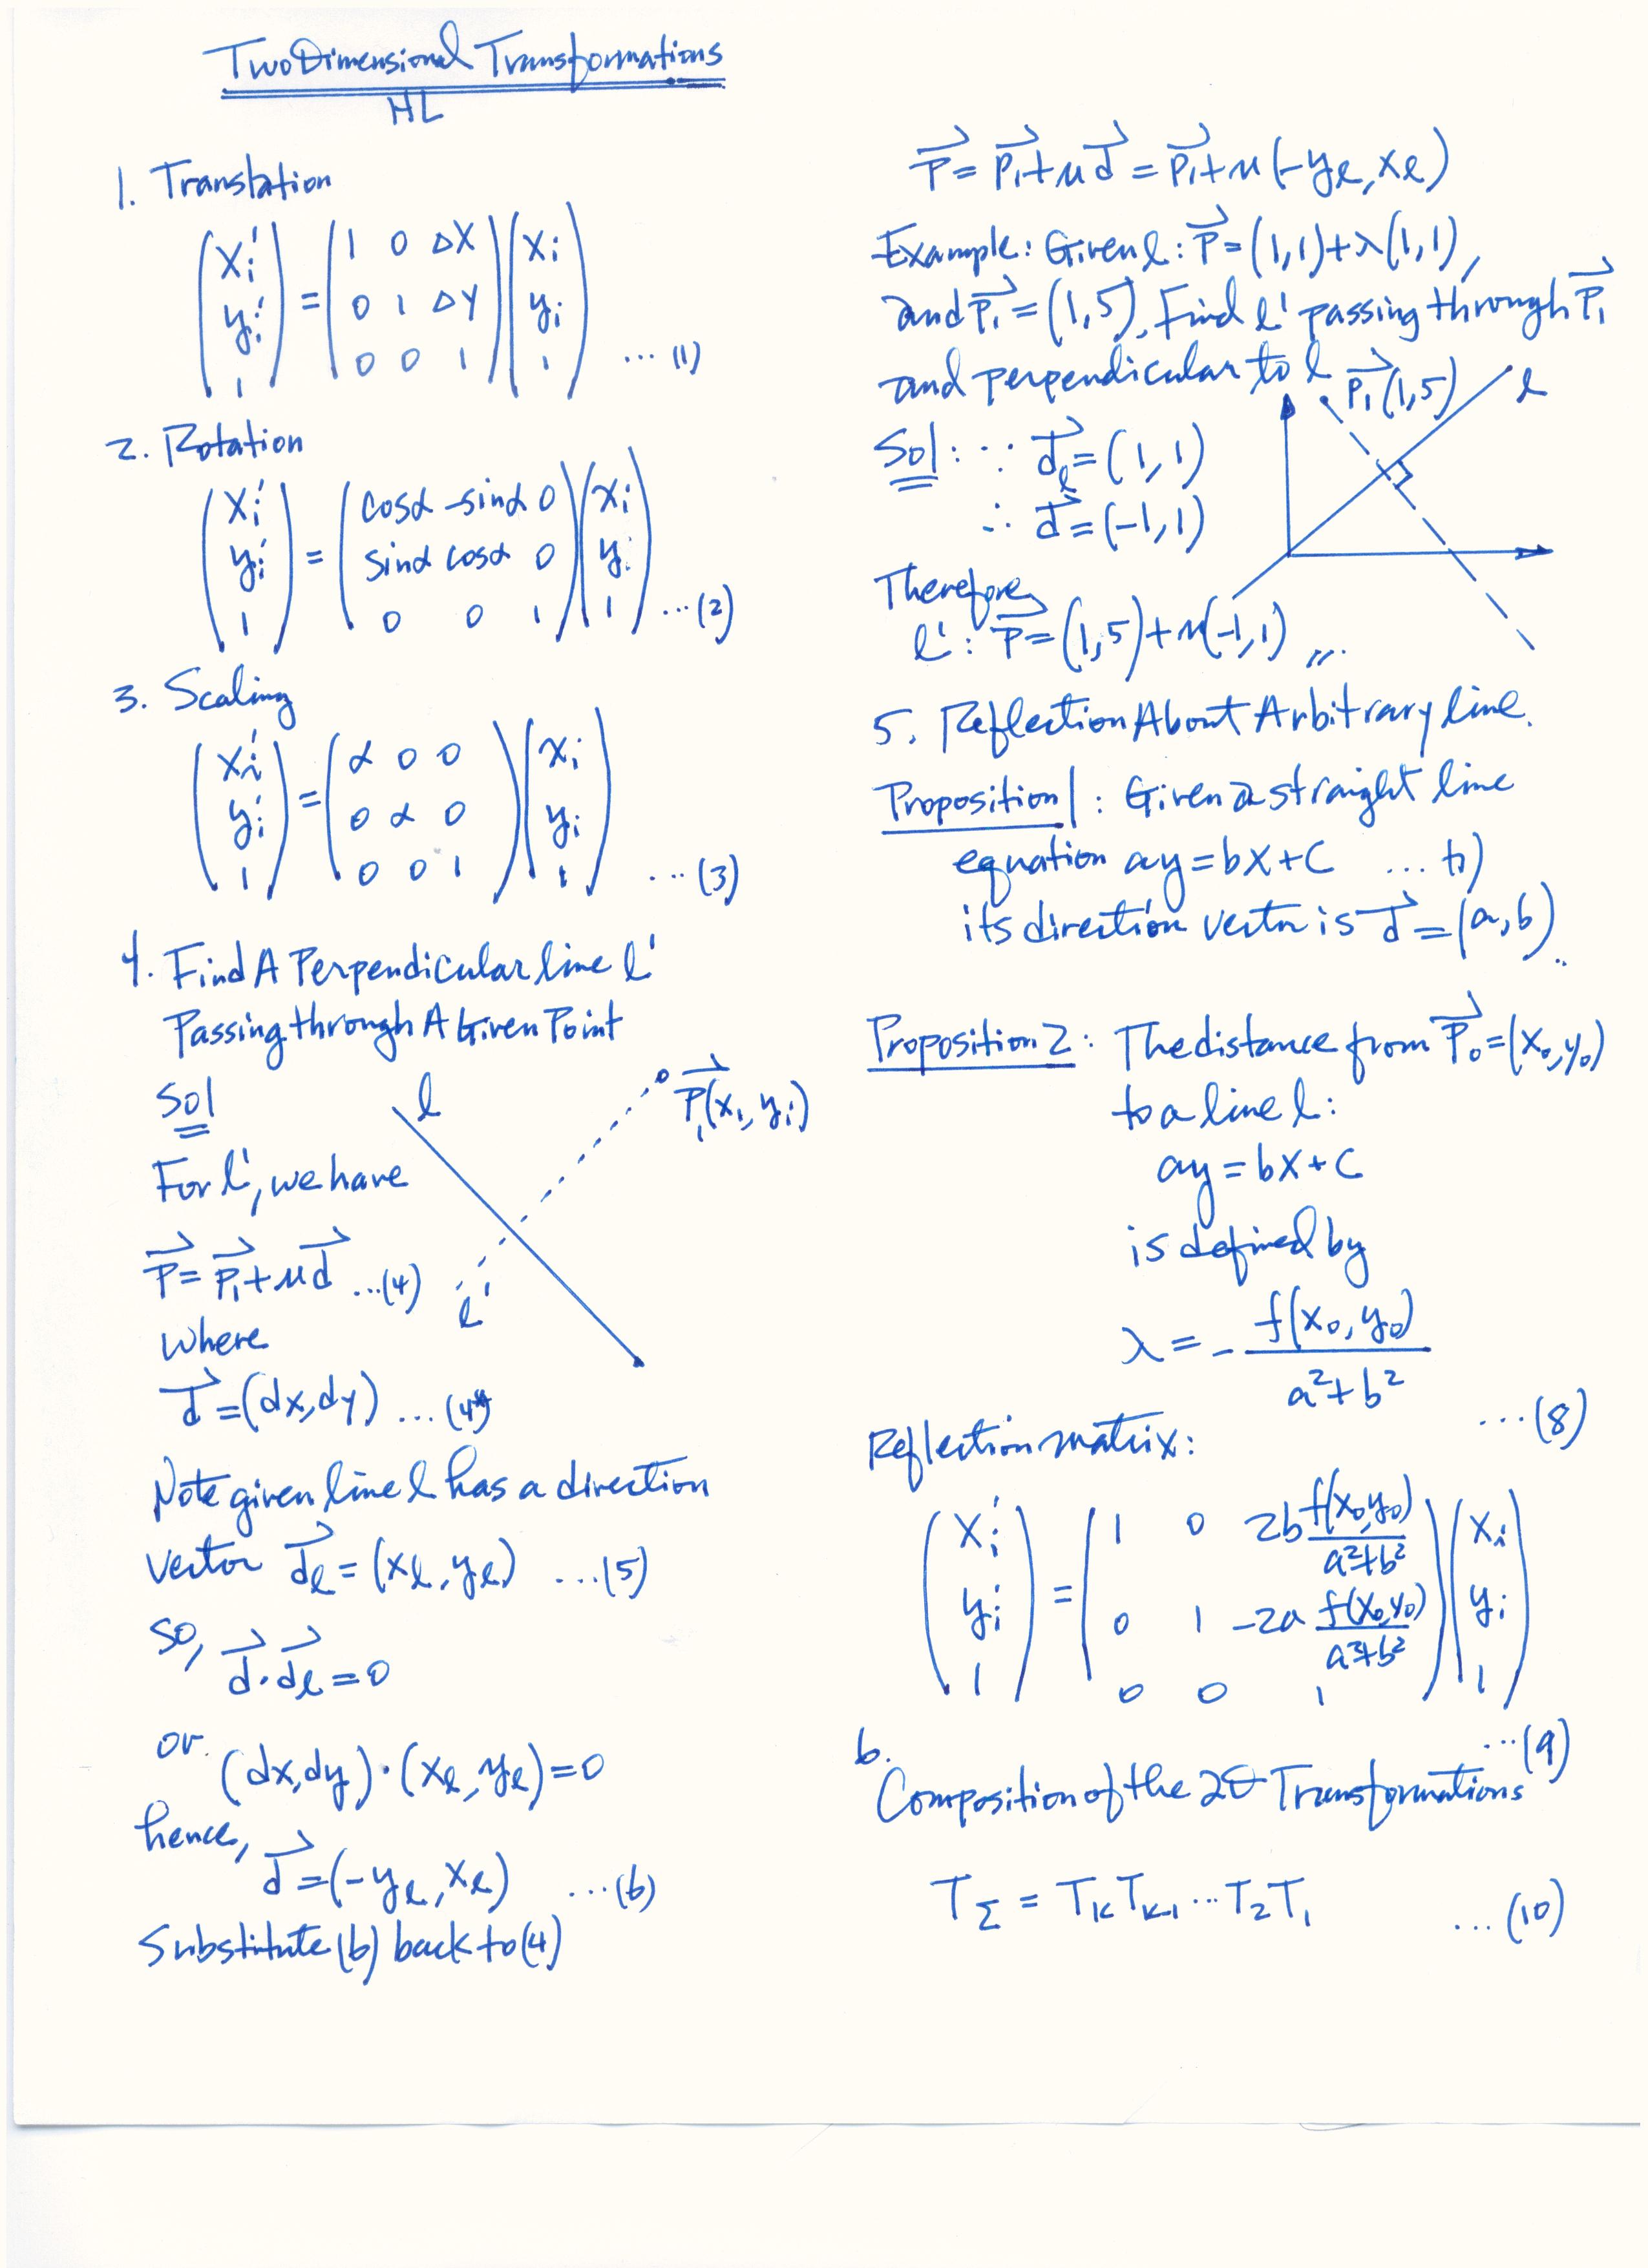 Two Dimensional Transformations
HL
1. Translation
(xi' yi' 1) = (1 0 ΔX / 0 1 ΔY / 0 0 1)(xi yi 1) ...(1)
2. Rotation
(xi' yi' 1) = (cosα -sinα 0 / sinα cosα 0 / 0 0 1)(xi yi 1) ...(2)
3. Scaling
(xi' yi' 1) = (α 0 0 / 0 α 0 / 0 0 1)(xi yi 1) ...(3)
4. Find A Perpendicular line l'
Passing through A Given Point
Sol
l
P1(x1, yi)
For l', we have
P = P1 + μd ...(4)
l'
where
d = (dx, dy) ...(4*)
Note given line l has a direction
vector dl = (xl, yl) ...(5)
so, d·dl = 0
or (dx, dy)·(xl, yl) = 0
hence,
d = (-yl, xl) ...(6)
Substitute (6) back to (4)
P = P1 + μd = P1 + μ(-yl, xl)
Example: Given l: P = (1,1) + λ(1,1),
and P1 = (1,5), Find l' passing through P1
and perpendicular to l
P1(1,5) l
Sol: ∵ dl = (1,1)
∴ d = (-1,1)
Therefore
l': P = (1,5) + μ(-1,1)
5. Reflection About Arbitrary line.
Proposition 1: Given a straight line
equation ay = bx + c ...(7)
its direction vector is d = (a,b)..
Proposition 2: The distance from P0 = (x0, y0)
to a line l:
ay = bx + c
is defined by
λ = - f(x0, y0) / (a²+b²) ...(8)
Reflection matrix:
(xi' yi' 1) = (1 0 2b f(x0,y0)/(a²+b²) / 0 1 -2a f(x0,y0)/(a²+b²) / 0 0 1)(xi yi 1) ...(9)
6.
Composition of the 2D Transformations
TΣ = TK TK-1 ... T2 T1 ...(10)